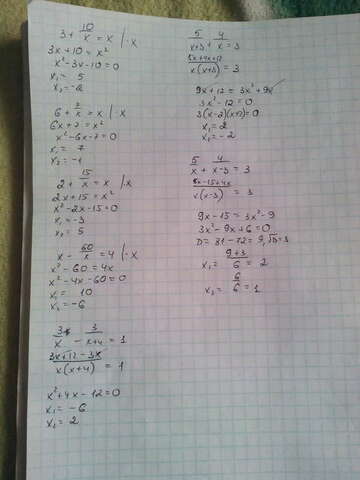 3 + 10/x = x | ·x
3x + 10 = x²
x² - 3x - 10 = 0
x₁ = 5
x₂ = -2
6 + 7/x = x | ·x
6x + 7 = x²
x² - 6x - 7 = 0
x₁ = 7
x₂ = -1
2 + 15/x = x | x
2x + 15 = x²
x² - 2x - 15 = 0
x₁ = -3
x₂ = 5
x - 60/x = 4 | ·x
x² - 60 = 4x
x² - 4x - 60 = 0
x₁ = 10
x₂ = -6
3/x - 3/(x+4) = 1
(3x + 12 - 3x)/(x(x+4)) = 1
x² + 4x - 12 = 0
x₁ = -6
x₂ = 2
5/(x+3) + 4/x = 3
(5x + 4x + 12)/(x(x+3)) = 3
9x + 12 = 3x² + 9x
3x² - 12 = 0
3(x-2)(x+2) = 0
x₁ = 2
x₂ = -2
5/x + 4/(x-3) = 3
(5x - 15 + 4x)/(x(x-3)) = 3
9x - 15 = 3x² - 9
3x² - 9x + 6 = 0
D = 81 - 72 = 9, √D = 3
x₁ = (9+3)/6 = 2
x₂ = 6/6 = 1